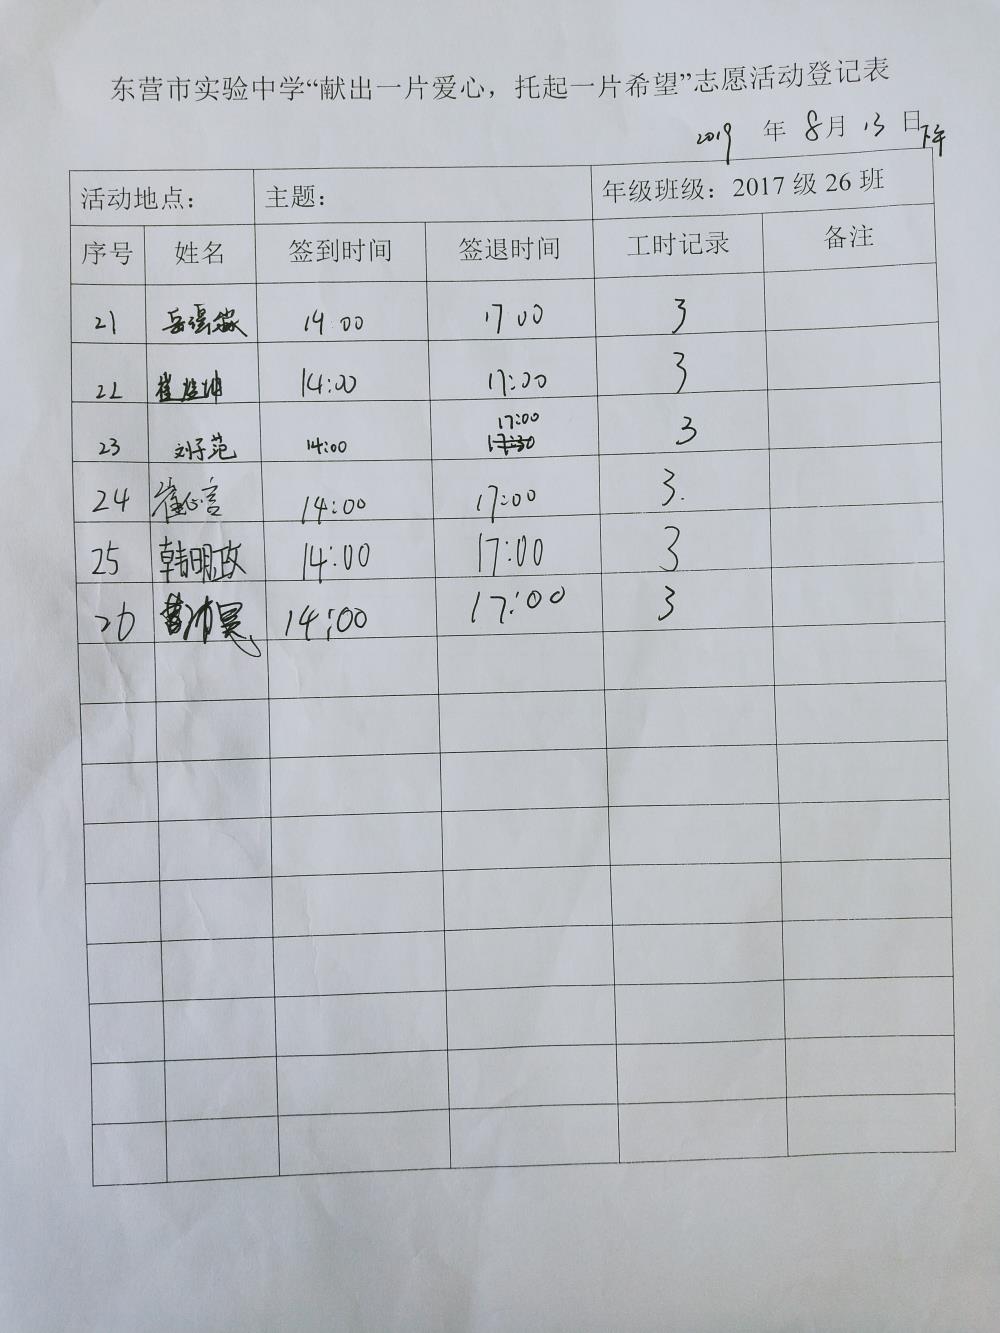 东营市实验中学“献出一片爱心，托起一片希望”志愿活动登记表
2019 年 8月 13 日下午
活动地点： 主题： 年级班级：2017 级 26 班
序号 姓名 签到时间 签退时间 工时记录 备注
21 14:00 17:00 3
22 14:00 17:00 3
17:00
23 刘子范 14:00 17:30 3
24 崔心言 14:00 17:00 3.
25 韩明政 14:00 17:00 3
26 14:00 17:00 3